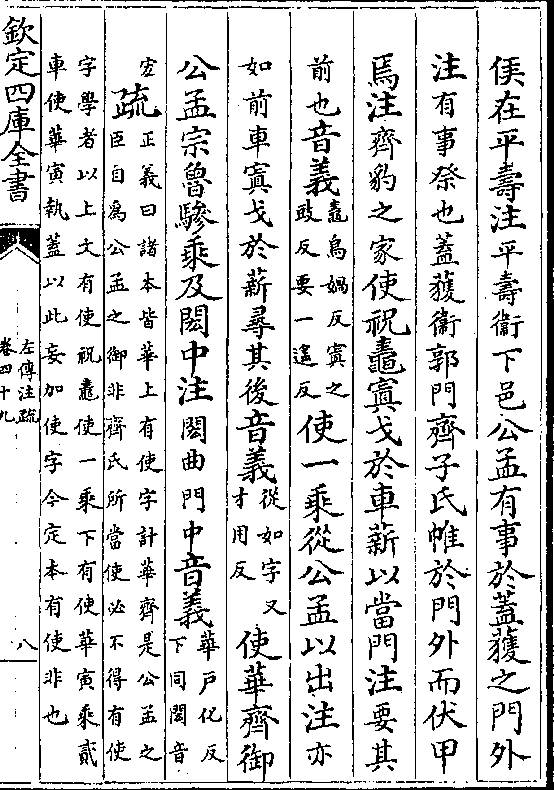 侯在平壽注平壽衛下邑公孟有事於蓋蒦之門外
注有事祭也蓋蒦衛郭門齊子氏帷於門外而伏甲
焉注齊豹之家使祝鼃寘戈於車薪以當門注要其
前也音義鼃烏媧反寘之
豉反要一遥反使一乘從公孟以出注亦
如前車寘戈於薪尋其後音義從如字又
才用反使華齊御
公孟宗魯驂乘及閎中注閎曲門中音義華戸化反
下同閎音
宏疏正義曰諸本皆華上有使字計華齊是公孟之
臣自爲公孟之御非齊氏所當使必不得有使
字學者以上文有使祝鼃使一乘下有使華寅乘貳
車使華寅執蓋以此妄加使字今定本有使非也
欽定四庫全書
左傳注疏
卷四十九
八